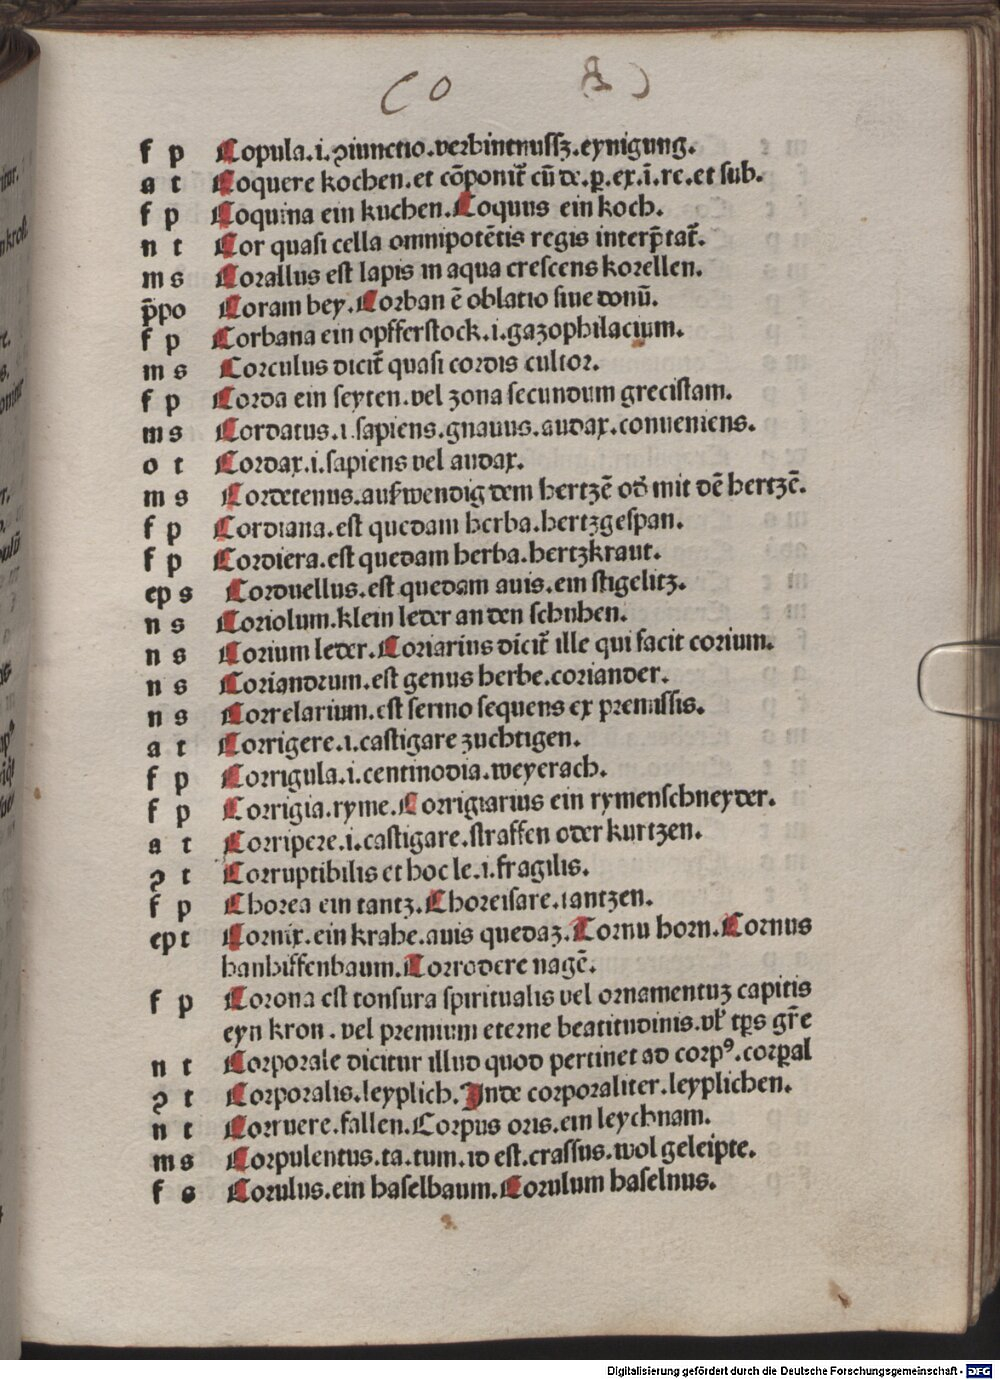 C O R
f p Copula.i.ꝯiunctio.verbintnussz.eynigung.
a t Coquere kochen.et cōponit̄ cū de.p.ex.ī.re.et sub.
f p Coquina ein kuchen.Coquus ein koch.
n t Cor quasi cella omnipotētis regis interp̄tat̄.
m s Corallus est lapis in aqua crescens korellen.
p̄po Coram bey.Corban ē oblatio siue donū.
f p Corbana ein opfferstock.i.gazophilacium.
m s Corculus dicit̄ quasi cordis cultor.
f p Corda ein seyten.vel zona secundum grecistam.
m s Cordatus.i.sapiens.gnauus.audax.conueniens.
o t Cordax.i.sapiens vel audax.
m s Cordetenus.außwendig dem hertzē od̓ mit dē hertzē.
f p Cordiana.est quedam herba.hertzgespan.
f p Cordiera.est quedam herba.hertzkraut.
ep s Corduellus.est quedam auis.ein stigelitz.
n s Coriolum.klein leder an den schuhen.
n s Corium leder.Coriarius dicit̄ ille qui facit corium.
n s Coriandrum.est genus herbe.coriander.
n s Correlarium.est sermo sequens ex premissis.
a t Corrigere.i.castigare zuchtigen.
f p Corrigula.i.centinodia.weyerach.
f p Corrigia.ryme.Corrigiarius ein rymenschneyder.
a t Corripere.i.castigare.straffen oder kurtzen.
ꝯ t Corruptibilis et hoc le.i.fragilis.
f p Chorea ein tantz.Choreisare.tantzen.
ep t Cornix.ein krahe.auis quedaz.Cornu horn.Cornus
hanhiffenbaum.Corrodere nagē.
f p Corona est tonsura spiritualis vel ornamentuz capitis
eyn kron.vel premium eterne beatitudinis.vl̓ tp̄s gr̄e
n t Corporale dicitur illud quod pertinet ad corpꝰ.corp̱al
ꝯ t Corporalis.leyplich.Inde corporaliter.leyplichen.
n t Corruere.fallen.Corpus oris.ein leychnam.
m s Corpulentus.ta.tum.id est.crassus.wol geleipte.
f s Corulus.ein haselbaum.Corulum haselnus.
Digitalisierung gefördert durch die Deutsche Forschungsgemeinschaft - DFG